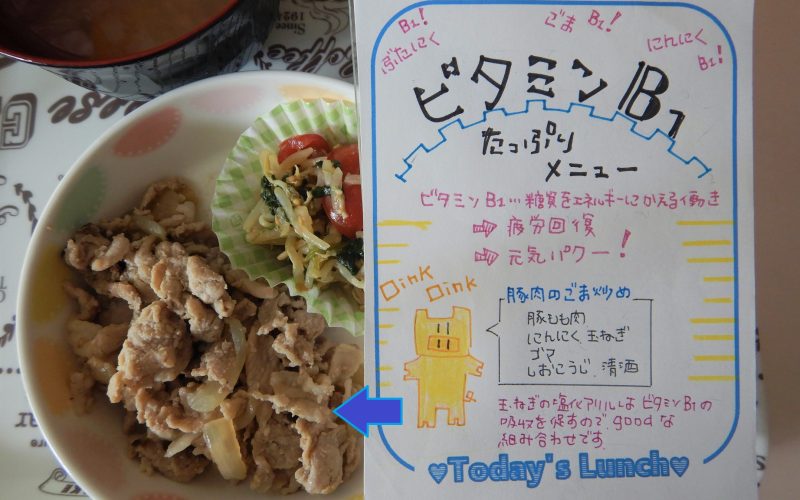 B1!
ぶたにく
ごま B1!
にんにく
B1!
ビタミンB1
たっぷり
メニュー
ビタミンB1…糖質をエネルギーにかえる働き
⇨ 疲労回復
⇨ 元気パワー!
Oink
Oink
豚肉のごま炒め
豚もも肉
にんにく 玉ねぎ
ゴマ
しおこうじ、清酒
玉ねぎの塩化アリルは ビタミンB1の
吸収を促すので、goodな
組み合わせです。
♥Today's Lunch♥
Since